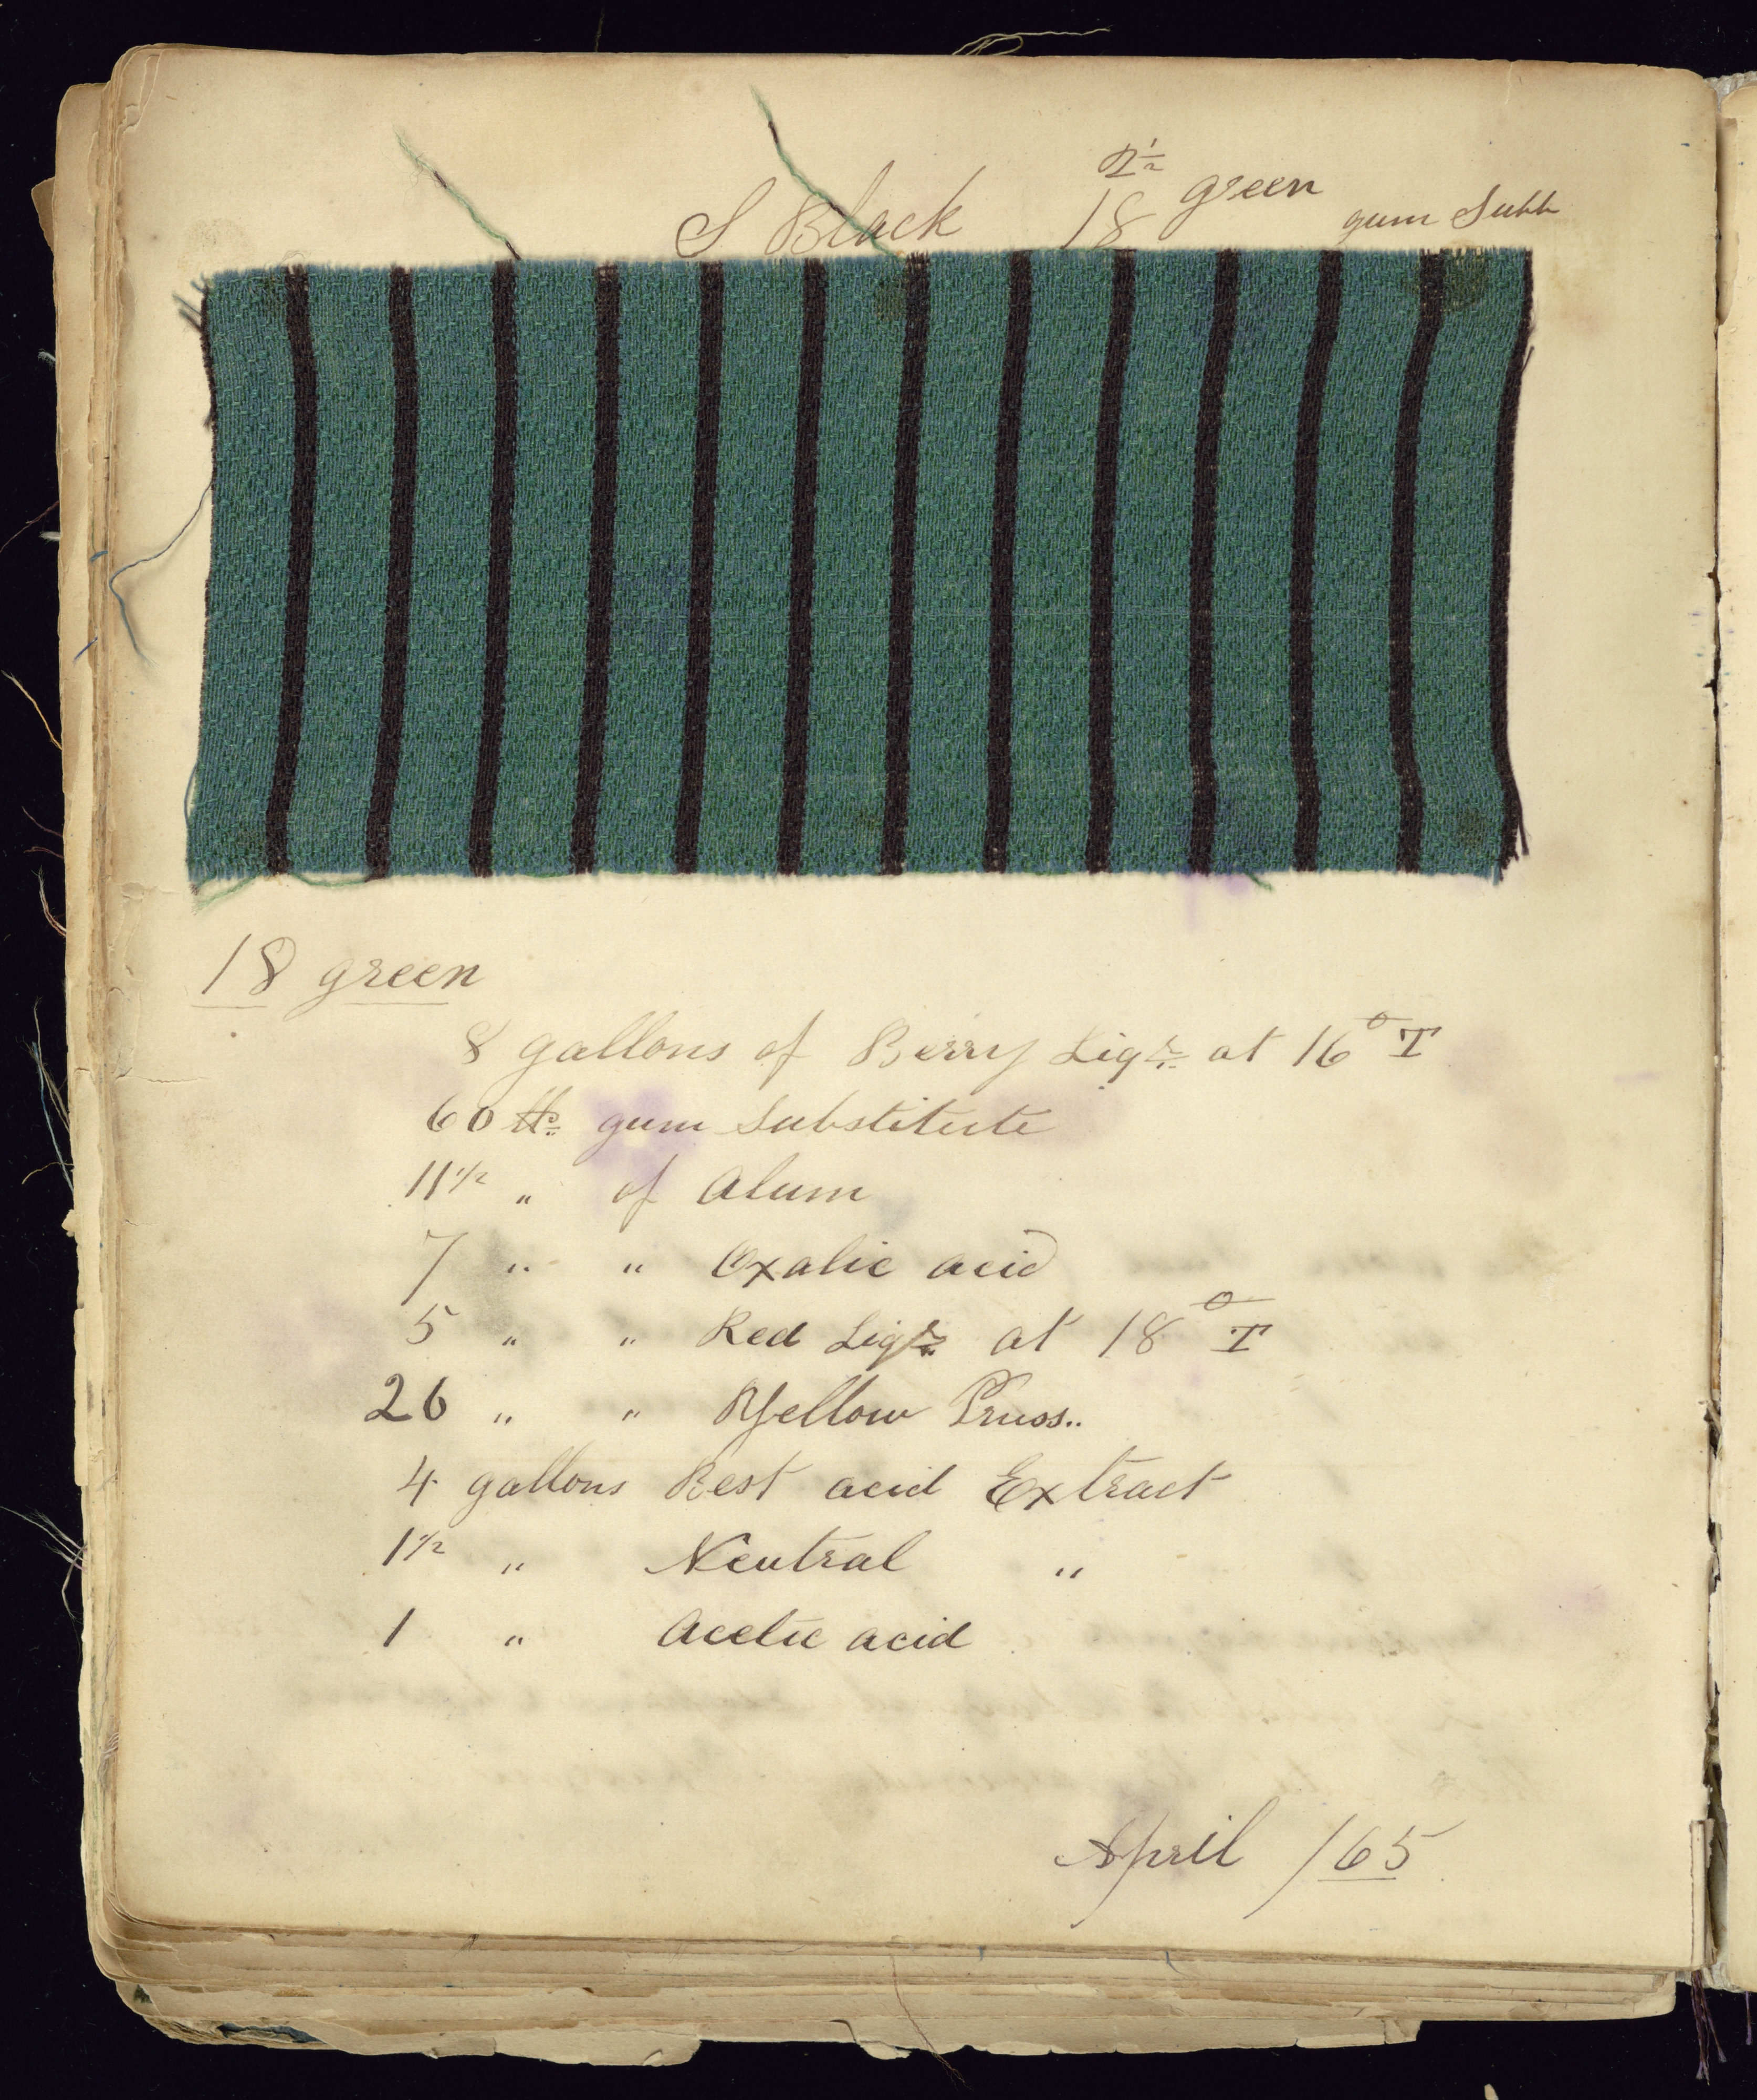 S Black 18 green gum Subb
18 green
8 gallons of Berry Liqr at 16° T
60 lb gum Substitute
11 1/2 " of Alum
7 " " Oxalic acid
5 " " Red Liqr at 18° T
26 " " Yellow Pruss..
4 gallons Best acid Extract
1 1/2 " Neutral "
1 " Acetic acid
April /65